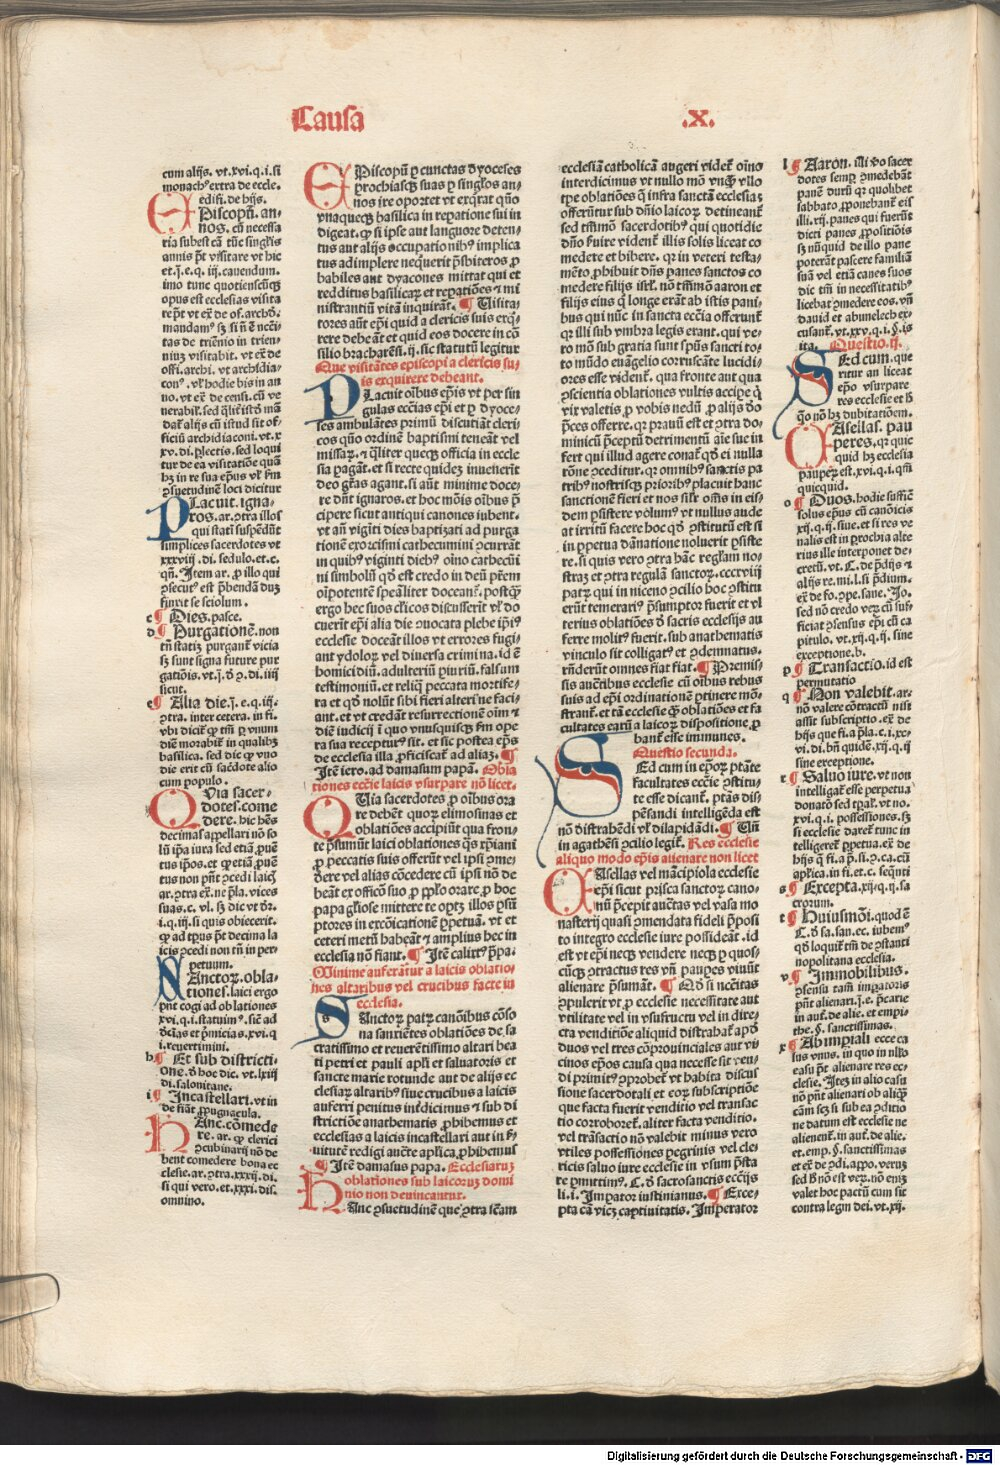 Causa
.X.
cum alijs. vt.xvi.q.i.si
monach⁹ extra de eccle.
edifi. de hijs.
EPiscopū. an-
nos. cū necessa
ria subest cā tūc singlis
annis pōt visitare vt hic
et.j̄.e.q. iij. cauendum.
imo tunc quotienscūqꝫ
opus est ecclesias visita
Placuit. igna-
ros. ar. ꝯtra illos
qui statī suspēdūt
simplices sacerdotes vt
xxxviij. di. sedulo. et.c.
c¶ Dies. pasce.
d¶ Purgationē. non
e¶ Alia die. j̄. e.q.iij.
ꝯtra. inter cetera. in fi.
die erit cū sacēdote alio
cum populo.
QVia sacer-
dotes. come
dere. hic hēs
decimas appellari nō so
lū ip̄a iura sed etiā ꝓuē
suas. c. vl. sꝫ dic vt dr̄.
i.q.iij. si quis obiecerit.
petuum.
SAnctoꝝ. obla-
tiones. laici ergo
pn̄t cogi ad oblationes
i. reuertimini.
h¶ Et sub districti-
one. ð hoc dic. vt.lxiij
di. salonitane.
i¶ Incastellari. vt in
de fiāt ꝓpugnacula.
HAnc. cōmede
re. ar. ꝙ clerici
ꝯcubinarij nō de
bent comedere bona ec
clesie. ar. ꝯtra. xxxij. di.
si qui vero. et.xxxi. dis.
omnino.
EPiscopū ꝑ cunctas dyoceses
ꝑrochiasqꝫ suas ꝑ singlos an-
nos ire oportet vt exqrat qd̄o
vnaqueqꝫ basilica in reꝑatione sui in
digeat. ꝙ si ipse aut languore deten-
tus aut alijs occupationib⁹ implica
tus adimplere nequerit p̄sbiteros ꝓ
babiles aut dyacones mittat qui et
redditus basilicaꝝ et reꝑatiōes ⁊ mi
nistrantiū vitā inquirāt. ¶ Visita-
tores aūt ep̄i quid a clericis suis exq-
rere debeāt et quid eos docere in cō
silio bracharēsi. ij. sic statutū legitur
Que visitātes episcopi a clericis su-
is exquirere debeant.
PLacuit oībus ep̄is vt per sin
gulas ecc̄ias ep̄i et ꝑ dyoce-
ses ambulātes primū discutiāt cleri-
cos quō ordinē baptismi teneāt vel
missaꝝ. ⁊ qliter queqꝫ officia in eccle
sia ꝑagāt. et si recte quideꝫ inuenerit
deo gr̄as agant. si aūt minime doce-
re dn̄t ignaros. et hoc mōis oībus p̄
cipere sicut antiqui canones iubent.
vt añ viginti dies baptizati ad purga
tionē exorcismi cathecumini ꝯcurrāt
in quib⁹ viginti dieb⁹ oīno cathecūi
ni simbolū qd̄ est credo in deū p̄rem
oīpotentē speāliter doceant. postqꝫ
ergo hec suos clericos discusserit vl do
cuerit ep̄i alia die ꝯuocata plebe ip̄i⁹
ecclesie doceāt illos vt errores fugi-
ant ydoloꝝ vel diuersa crimina. id ē
homicidiū. adulteriū ꝑiuriū. falsum
testimoniū. et reliq peccata mortife-
ra et qd̄ nolūt sibi fieri alteri ne faci-
ant. et vt credāt resurrectionē oīm ⁊
diē iudicij ī quo vnusquisqꝫ fm ope
ra sua receptur⁹ sit. et sic postea ep̄s
de ecclesia illa ꝓficiscat̄ ad aliaꝫ. ¶
Itē iero. ad damasum papā. Obla
tiones ecc̄ie laicis vsurpare nō licet.
QVia sacerdotes ꝓ oībus ora
re debēt quoꝝ elimosinas et
oblatiōes accipiūt qua fron-
te p̄sumūt laici oblationes qs xp̄iani
ꝓ peccatis suis offerūt vel ip̄i ꝯme-
dere vel alias cōcedere cū ip̄i nō de
beāt ex officō suo ꝓ pp̄lo orare. ꝓ hoc
ptores in excōicationē ꝑpetuā. vt et
ceteri metū habeāt ⁊ amplius hec in
ecclesia nō fiant. ¶ Itē calixt⁹ p̄pa.
Minime auferātur a laicis oblatio-
nes altaribus vel crucibus facte in
ecclesia.
SAnctoꝝ patꝝ canōibus cōso
na sanxiētes oblatiōes de sa
cratissimo et reuerētissimo altari bea
ti petri et pauli apl̄i et saluatoris et
sancte marie rotunde aut de alijs ec
clesiaꝝ altarib⁹ siue crucibus a laicis
auferri penitus interdicimus ⁊ sub di
strictiōe anathematis ꝓhibemus et
ecclesias a laicis incastellari aut in ẜ-
uitutē redigi auctē apl̄ica ꝓhibemus
¶ Itē damasus papa. Ecclesiaruꝫ
oblationes sub laicoruꝫ domi
nio non deuincantur.
HAnc ꝯsuetudinē que ꝯtra sc̄am
ecclesiā catholicā augeri videt̄ oīno
interdicimus vt nullo mō vnqꝫ vllo
tpe oblatiōes q infra sanctā ecclesiaꝫ
offerūtur sub dn̄io laicoꝝ detineant̄
sed tm̄mō sacerdotib⁹ qui quotidie
dn̄o ẜuire vident̄ illis solis liceat co
medere et bibere. qꝛ in veteri testa-
mēto ꝓhibuit dn̄s panes sanctos co
medere filijs isrl̄. nō tm̄mō aaron et
filijs eius q longe erāt ab istis pani
bus qui nūc in sancta ecc̄ia offerunt̄
qꝛ illi sub vmbra legis erant. qui ve-
ro mō sub gratia sunt sp̄us sancti to-
to mūdo euāgelio corruscāte lucidi-
ores esse vident̄. qua fronte aut qua
ꝯscientia oblationes vultis accipe q
vix valetis ꝓ vobis nedū ꝓ alijs dō
p̄ces offerre. qꝛ prauū est et ꝯtra do-
minicū p̄ceptū detrimentū aīe sue in
fert qui illud agere conat̄ qd̄ ei nulla
rōne ꝯceditur. qꝛ omnib⁹ sanctis pa
trib⁹ nostrisqꝫ priorib⁹ placuit hanc
sanctionē fieri et nos sil̄r om̄s in eis-
dem ꝑsistere volum⁹ vt nullus aude
at irritū facere hoc qd̄ ꝯstitutū est si
in ꝑpetua dānatione noluerit ꝑsiste
re. si quis vero ꝯtra hāc regl̄am no-
straꝫ et ꝯtra regulā sanctoꝝ. cccxviij
patꝝ qui in niceno ꝯcilio hoc ꝯstitu
erūt temerari⁹ p̄sumptor fuerit et vl
terius oblatiōes ð sacris ecclesijs au
ferre molit⁹ fuerit. sub anathematis
vinculo sit colligat⁹ et ꝯdemnatus.
rn̄derūt omnes fiat fiat. ¶ Premis-
sis auctibus ecclesie cū oībus rebus
suis ad ep̄i ordinationē ꝑtinere mō-
strant̄. et tā ecclesie qꝫ oblatiōes et fa
cultates earū a laicoꝝ dispositione ꝓ
bant̄ esse immunes.
Questio secunda.
SEd cum in ep̄oꝝ ptāte
facultates ecc̄ie ꝯstitu-
te esse dicant̄. ptās dis-
pēsandi intelligēda est
nō distrahēdi vl dilapidādi. ¶ Vñ
in agathēsi ꝯcilio legit̄. Res ecclesie
aliquo modo ep̄is alienare non licet
CAsellas vel mācipiola ecclesie
ep̄i sicut prisca sanctoꝝ cano-
nū p̄cepit auctas vel vasa mo
nasterij quasi ꝯmendata fideli ꝓposi
to integro ecclesie iure possideāt. id
est vt ep̄i neqꝫ vendere neqꝫ ꝑ quos-
cūqꝫ ꝯtractus res vñ pauꝑes viuūt
alienare p̄sumāt. ¶ Qd̄ si nc̄citas
ꝯpulerit vt ꝓ ecclesie necessitate aut
vtilitate vel in vsufructu vel in dire-
cta venditiōe aliquid distrahat̄ apd̄
duos vel tres cōprouinciales aut vi-
cinos ep̄os causa qua necesse sit ven-
di primit⁹ ꝯprobet̄ vt habita discus
sione sacerdotali et eoꝝ subscriptiōe
que facta fuerit venditio vel transac
tio corroboret̄. aliter facta venditio.
vel trāsactio nō valebit minus vero
vtiles possessiones ꝑegrinis vel cle-
ricis saluo iure ecclesie in vsum p̄sta
re ꝑmittim⁹. C. ð sacrosanctis ecc̄ijs
li. i. Impator iustinianus. ¶ Exce-
pta cā vicꝫ captiuitatis. Imperator
l¶ Aaron. illi ꝟo sacer
dotes semꝑ ꝯmedebāt
panē durū qꝛ quolibet
sabbato ꝓponebant̄ eis
illi. xij. panes qui fuerūt
dicti panes ꝓpositiōis
sꝫ nūquid de illo pane
poterāt pascere familiā
suā vel etiā canes suos
dic tn̄ in necessitatib⁹
licebat ꝯmedere eos. vñ
dauid et abimelech ex-
cusant̄. vt. xxv. q. i. §. is
ita. Questio.ij.
SEd cum. que
ritur an liceat
ep̄o vsurpare
res ecclesie et ð
qo nō hꝫ dubitatiōem.
CAsellas. pau
peres. qꝛ quic
quid hꝫ ecclesia
pauperꝝ est. xvi. q. i. qm̄
quicquid.
o¶ Duos. hodie suffic̄
solus ep̄us cū canōicis
xij. q. ij. siue. et si res ve
nalis est in ꝑrochia alte
rius ille interponet de-
cretū. vt. C. de p̄dijs ⁊
sed nō credo veꝝ cū suf-
ficiat ꝯsensus ep̄i cū ca
pitulo. vt. xij. q. ij. sine
exceptione. b.
p¶ Transactio. id est
permutatio
q¶ Non valebit. ar.
nō valere cōtractū nisi
assit subscriptio. ex de
hijs que fi. a p̄la. c. i. xc-
vi. di. bñ quidē. xij. q. ij
sine exceptione.
r¶ Saluo iure. vt non
intelligat̄ esse perpetua
xvi. q. i. possessiones. sꝫ
si ecclesie daret̄ tunc in
telligeret̄ ꝑpetua. ex de
hijs q fi. a p̄. si. ꝯ. ca. cū
apl̄ica. in fi. et. c. seq̄nti
s¶ Excepta. xij. q. ij. sa
crorum.
t¶ Huiusmōi. quod ē
C. ð sa. san. ec. iubem⁹
qd̄ loquit̄ tm̄ de ꝯstanti
nopolitana ecclesia.
v¶ Immobilibus.
ꝯsensu tam̄ impatoris
pn̄t alienari. j̄. e. p̄catie
in aut̄. de alie. et empi-
the. §. sanctissimas.
x¶ Ab impiali ecce ca
lus vnus. in quo in nllo
casu pn̄t alienare res ec-
clesie. Itez in alio casu
nō pn̄t alienari ob aliqꝫ
cām scꝫ si sub ea ꝯditio
ne datum est ecclesie ne
alienent̄. in aut̄. de alie.
et emp. §. sanctissimas
et ex de ꝯdi. appo. verus
sed ð nō est veꝝ. nō eniꝫ
valet hoc pactū cum sit
contra legem dei. vt. xij.
Digitalisierung gefördert durch die Deutsche Forschungsgemeinschaft - DFG